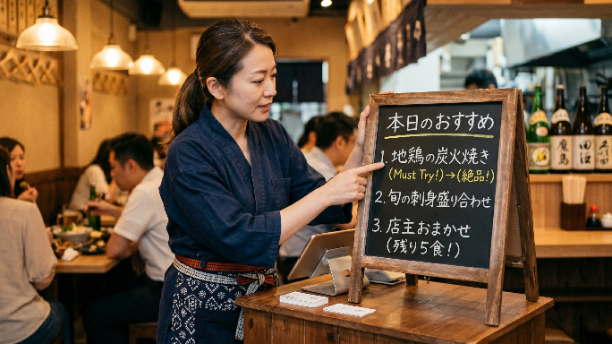 本日のおすすめ
1. 地鶏の炭火焼き
(Must Try!)→(絶品!)
2. 旬の刺身盛り合わせ
3. 店主おまかせ
(残り5食!)